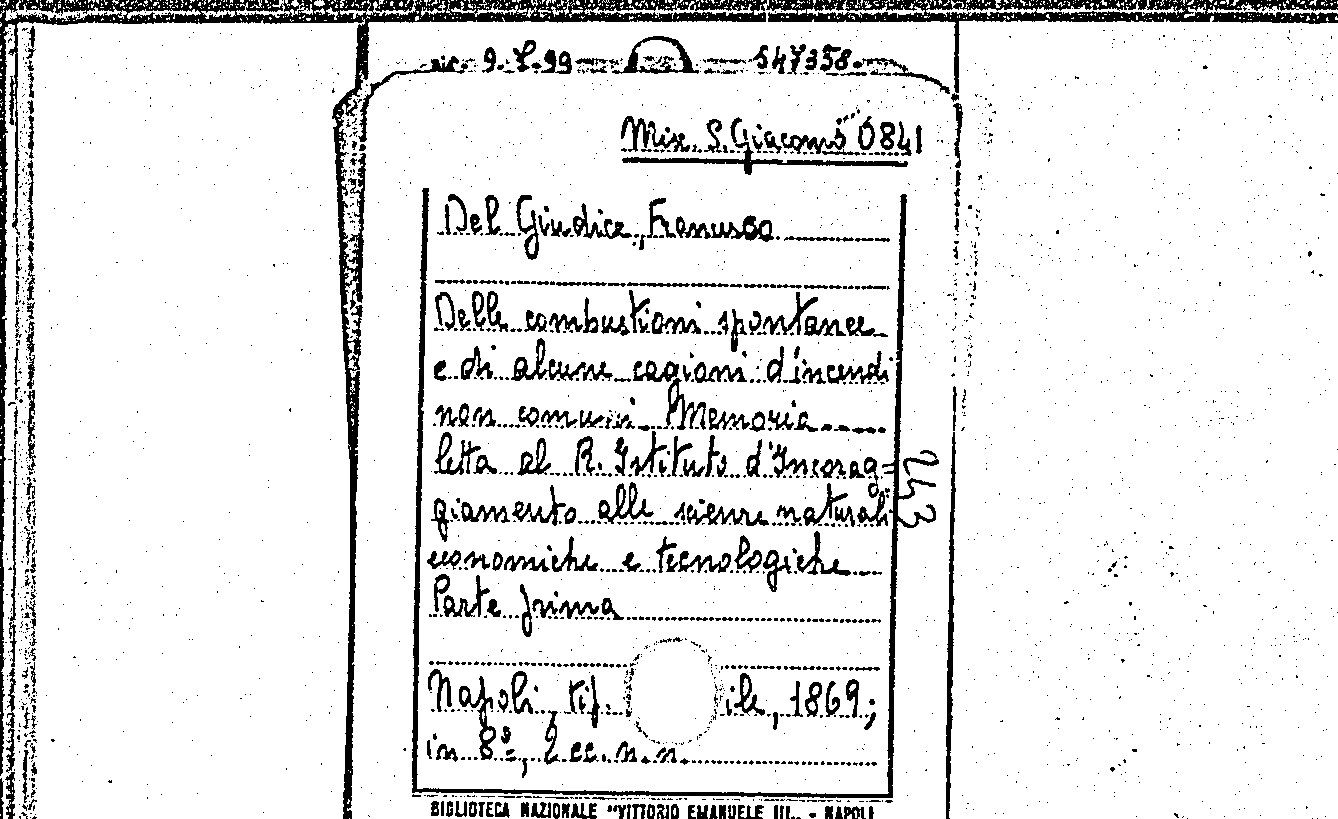 9.7.99 547358.
Misc. S. Giacomo 0841
Del Giudice, Francesco
Delle combustioni spontanee
e di alcune cagioni d'incendi
non comuni Memoria
letta al R. Istituto d'Incorag=
giamento alle scienze naturali
economiche e tecnologiche
Parte prima
Napoli, tip. ile, 1869;
in 8º, 2 cc. n.n.
243
BIBLIOTECA NAZIONALE "VITTORIO EMANUELE III„ - NAPOLI